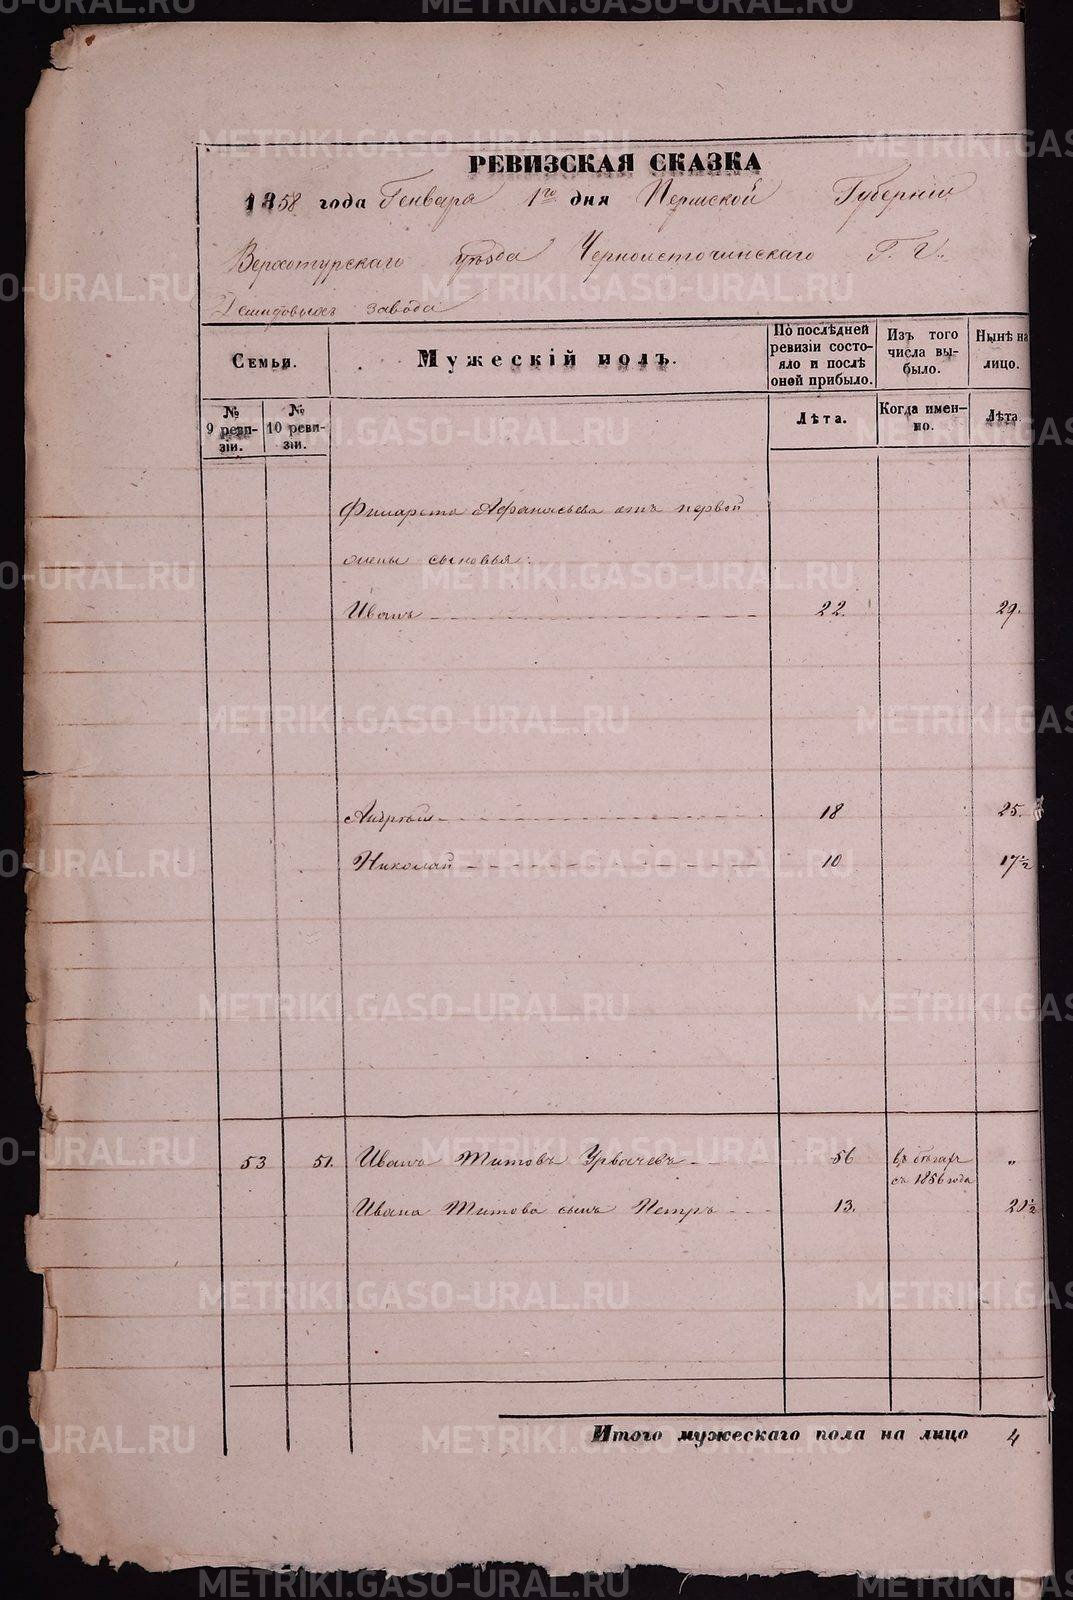 РЕВИЗСКАЯ СКАЗКА
1858 года Генваря 1го дня Пермской Губернии
Верхотурскаго уѣзда Черноисточинскаго Г. Г.
Демидовыхъ завода
Семьи.
Мужескій полъ.
По послѣдней ревизіи состояло и послѣ оной прибыло.
Изъ того числа выбыло.
Нынѣ на лицо.
№ 9 ревизіи.
№ 10 ревизіи.
Лѣта.
Когда именно.
Лѣта
Филарета Афанасьева отъ первой
жены сыновья:
Иванъ 22. 29.
Андрей 18 25.
Николай 10 17½
53 51. Иванъ Титовъ Урвачевъ 56 въ бѣгахъ съ 1856 года „
Ивана Титова сынъ Петръ 13. 20½
Итого мужескаго пола на лицо 4
METRIKI.GASO-URAL.RU